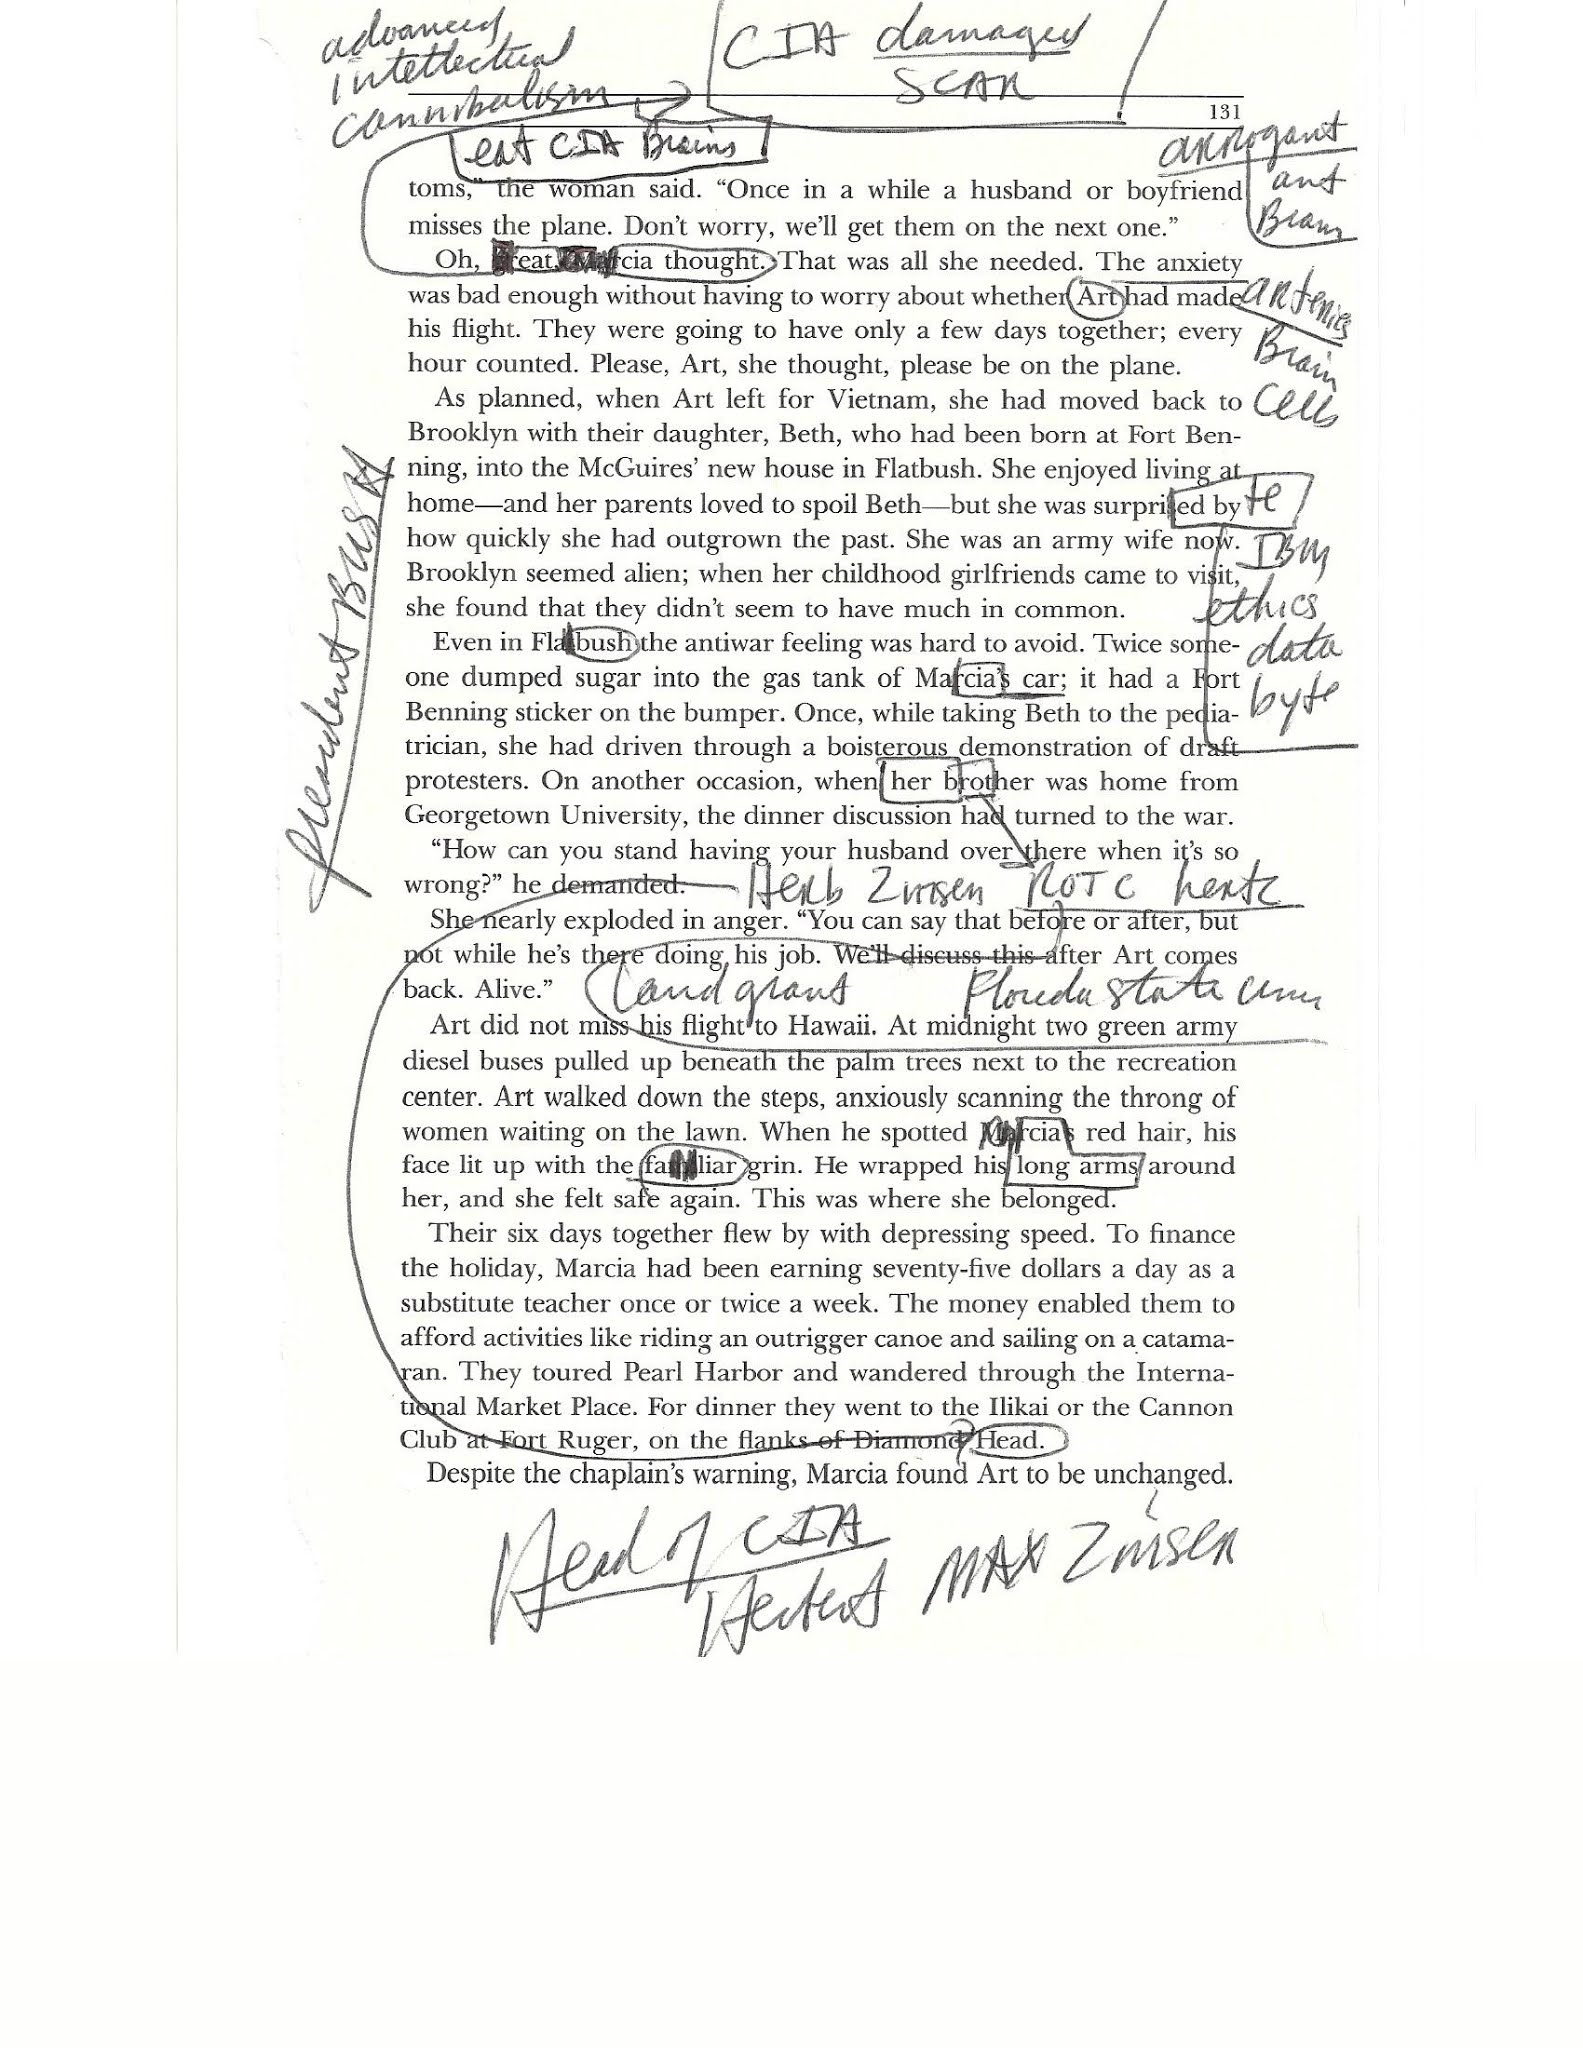 advanced
intellectual
cannibalism
CIA damaged
SCAR
131
eat CIA Brains
arrogant
ant
Beam
toms," the woman said. "Once in a while a husband or boyfriend
misses the plane. Don't worry, we'll get them on the next one."
Oh, great, Marcia thought. That was all she needed. The anxiety
was bad enough without having to worry about whether Art had made
arteries
his flight. They were going to have only a few days together; every
Brain
hour counted. Please, Art, she thought, please be on the plane.
As planned, when Art left for Vietnam, she had moved back to
Cells
Brooklyn with their daughter, Beth, who had been born at Fort Ben-
ning, into the McGuires' new house in Flatbush. She enjoyed living at
home—and her parents loved to spoil Beth—but she was surprised by
te
how quickly she had outgrown the past. She was an army wife now.
IBM
Brooklyn seemed alien; when her childhood girlfriends came to visit,
she found that they didn't seem to have much in common.
ethics
Even in Flatbush the antiwar feeling was hard to avoid. Twice some-
data
one dumped sugar into the gas tank of Marcia's car; it had a Fort
byte
Benning sticker on the bumper. Once, while taking Beth to the pedia-
trician, she had driven through a boisterous demonstration of draft
protesters. On another occasion, when her brother was home from
Georgetown University, the dinner discussion had turned to the war.
President BUSH
"How can you stand having your husband over there when it's so
wrong?" he demanded.
Herb Zinsen ROTC hertz
She nearly exploded in anger. "You can say that before or after, but
not while he's there doing his job. We'll discuss this after Art comes
back. Alive."
Land grant Florida State
Art did not miss his flight to Hawaii. At midnight two green army
diesel buses pulled up beneath the palm trees next to the recreation
center. Art walked down the steps, anxiously scanning the throng of
women waiting on the lawn. When he spotted Marcia's red hair, his
face lit up with the familiar grin. He wrapped his long arms around
her, and she felt safe again. This was where she belonged.
Their six days together flew by with depressing speed. To finance
the holiday, Marcia had been earning seventy-five dollars a day as a
substitute teacher once or twice a week. The money enabled them to
afford activities like riding an outrigger canoe and sailing on a catama-
ran. They toured Pearl Harbor and wandered through the Interna-
tional Market Place. For dinner they went to the Ilikai or the Cannon
Club at Fort Ruger, on the flanks of Diamond Head.
Despite the chaplain's warning, Marcia found Art to be unchanged.
Head of CIA
Herbert MAX Zinsen